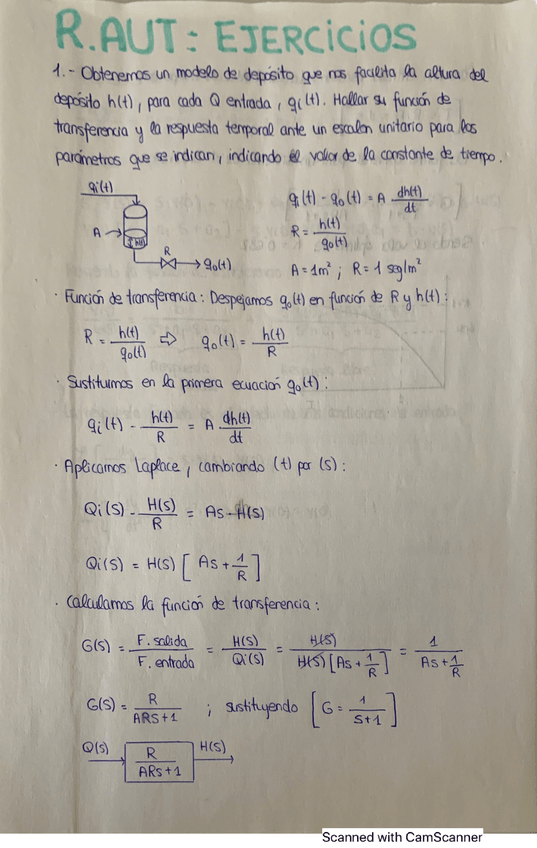 R.AUT: EJERCICIOS
1.- Obtenemos un modelo de depósito que nos facilita la altura del
depósito h(t), para cada Q entrada, qi(t). Hallar su función de
transferencia y la respuesta temporal ante un escalon unitario para los
parámetros que se indican, indicando el valor de la constante de tiempo.
qi(t)
A
h(t)
R
qo(t)
qi(t) - qo(t) = A dh(t)/dt
R = h(t)/qo(t)
A = 1m² ; R = 1 seg/m²
· Función de transferencia: Despejamos qo(t) en función de R y h(t):
R = h(t)/qo(t) ⇨ qo(t) = h(t)/R
· Sustituimos en la primera ecuación qo(t):
qi(t) - h(t)/R = A · dh(t)/dt
· Aplicamos Laplace, cambiando (t) por (s):
Qi(s) - H(s)/R = As·H(s)
Qi(s) = H(s) [As + 1/R]
· Calculamos la función de transferencia:
G(s) = F. salida/F. entrada = H(s)/Qi(s) = H(s)/H(s)[As + 1/R] = 1/As + 1/R
G(s) = R/ARs+1 ; sustituyendo [G = 1/s+1]
Q(s) R/ARs+1 H(s)
Scanned with CamScanner